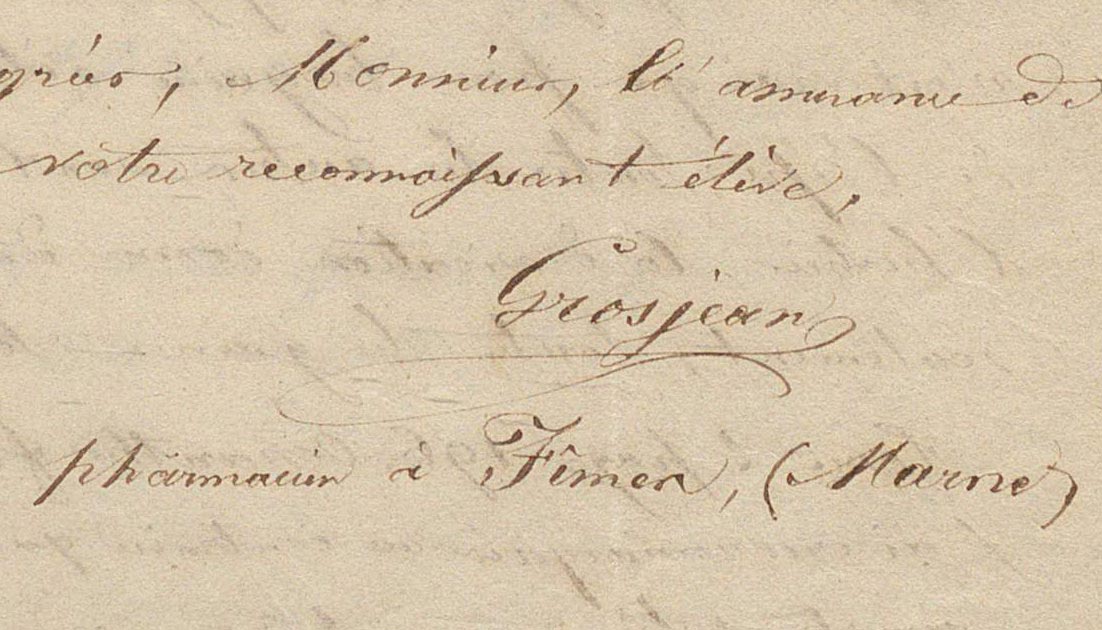 gréer, Monsieur, l'assurance de
votre reconnaissant élève.
Grosjean
pharmacien à Fîmes, (Marne)